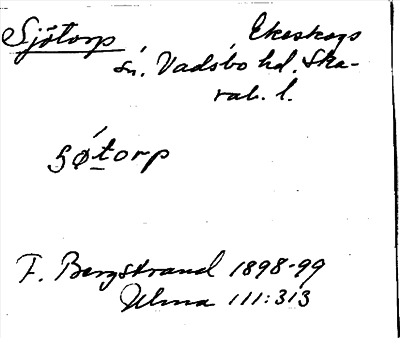 Sjötorp Ekeskogs
sn. Vadsbo hd. Ska-
rab. l.
§ǿtorp
F. Bergstrand 1898-99
Ulma 111:313